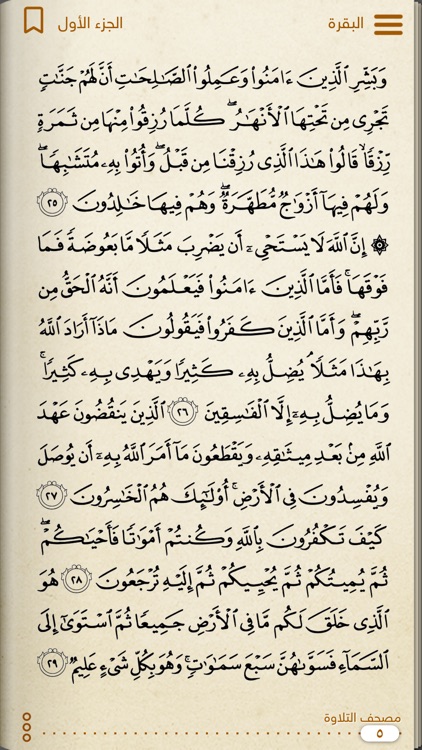 البقرة
الجزء الأول
وَبَشِّرِ ٱلَّذِينَ ءَامَنُوا۟ وَعَمِلُوا۟ ٱلصَّـٰلِحَـٰتِ أَنَّ لَهُمْ جَنَّـٰتٍ
تَجْرِى مِن تَحْتِهَا ٱلْأَنْهَـٰرُ ۖ كُلَّمَا رُزِقُوا۟ مِنْهَا مِن ثَمَرَةٍ
رِّزْقًا ۙ قَالُوا۟ هَـٰذَا ٱلَّذِى رُزِقْنَا مِن قَبْلُ ۖ وَأُتُوا۟ بِهِۦ مُتَشَـٰبِهًا ۖ
وَلَهُمْ فِيهَآ أَزْوَٰجٌ مُّطَهَّرَةٌ ۖ وَهُمْ فِيهَا خَـٰلِدُونَ ٢٥
۞ إِنَّ ٱللَّهَ لَا يَسْتَحْىِۦٓ أَن يَضْرِبَ مَثَلًا مَّا بَعُوضَةً فَمَا
فَوْقَهَا ۚ فَأَمَّا ٱلَّذِينَ ءَامَنُوا۟ فَيَعْلَمُونَ أَنَّهُ ٱلْحَقُّ مِن
رَّبِّهِمْ ۖ وَأَمَّا ٱلَّذِينَ كَفَرُوا۟ فَيَقُولُونَ مَاذَآ أَرَادَ ٱللَّهُ
بِهَـٰذَا مَثَلًا ۘ يُضِلُّ بِهِۦ كَثِيرًا وَيَهْدِى بِهِۦ كَثِيرًا ۚ
وَمَا يُضِلُّ بِهِۦٓ إِلَّا ٱلْفَـٰسِقِينَ ٢٦ ٱلَّذِينَ يَنقُضُونَ عَهْدَ
ٱللَّهِ مِنۢ بَعْدِ مِيثَـٰقِهِۦ وَيَقْطَعُونَ مَآ أَمَرَ ٱللَّهُ بِهِۦٓ أَن يُوصَلَ
وَيُفْسِدُونَ فِى ٱلْأَرْضِ ۚ أُو۟لَـٰٓئِكَ هُمُ ٱلْخَـٰسِرُونَ ٢٧
كَيْفَ تَكْفُرُونَ بِٱللَّهِ وَكُنتُمْ أَمْوَٰتًا فَأَحْيَـٰكُمْ ۖ
ثُمَّ يُمِيتُكُمْ ثُمَّ يُحْيِيكُمْ ثُمَّ إِلَيْهِ تُرْجَعُونَ ٢٨ هُوَ
ٱلَّذِى خَلَقَ لَكُم مَّا فِى ٱلْأَرْضِ جَمِيعًا ثُمَّ ٱسْتَوَىٰٓ إِلَى
ٱلسَّمَآءِ فَسَوَّىٰهُنَّ سَبْعَ سَمَـٰوَٰتٍ ۚ وَهُوَ بِكُلِّ شَىْءٍ عَلِيمٌ ٢٩
مصحف التلاوة
٥